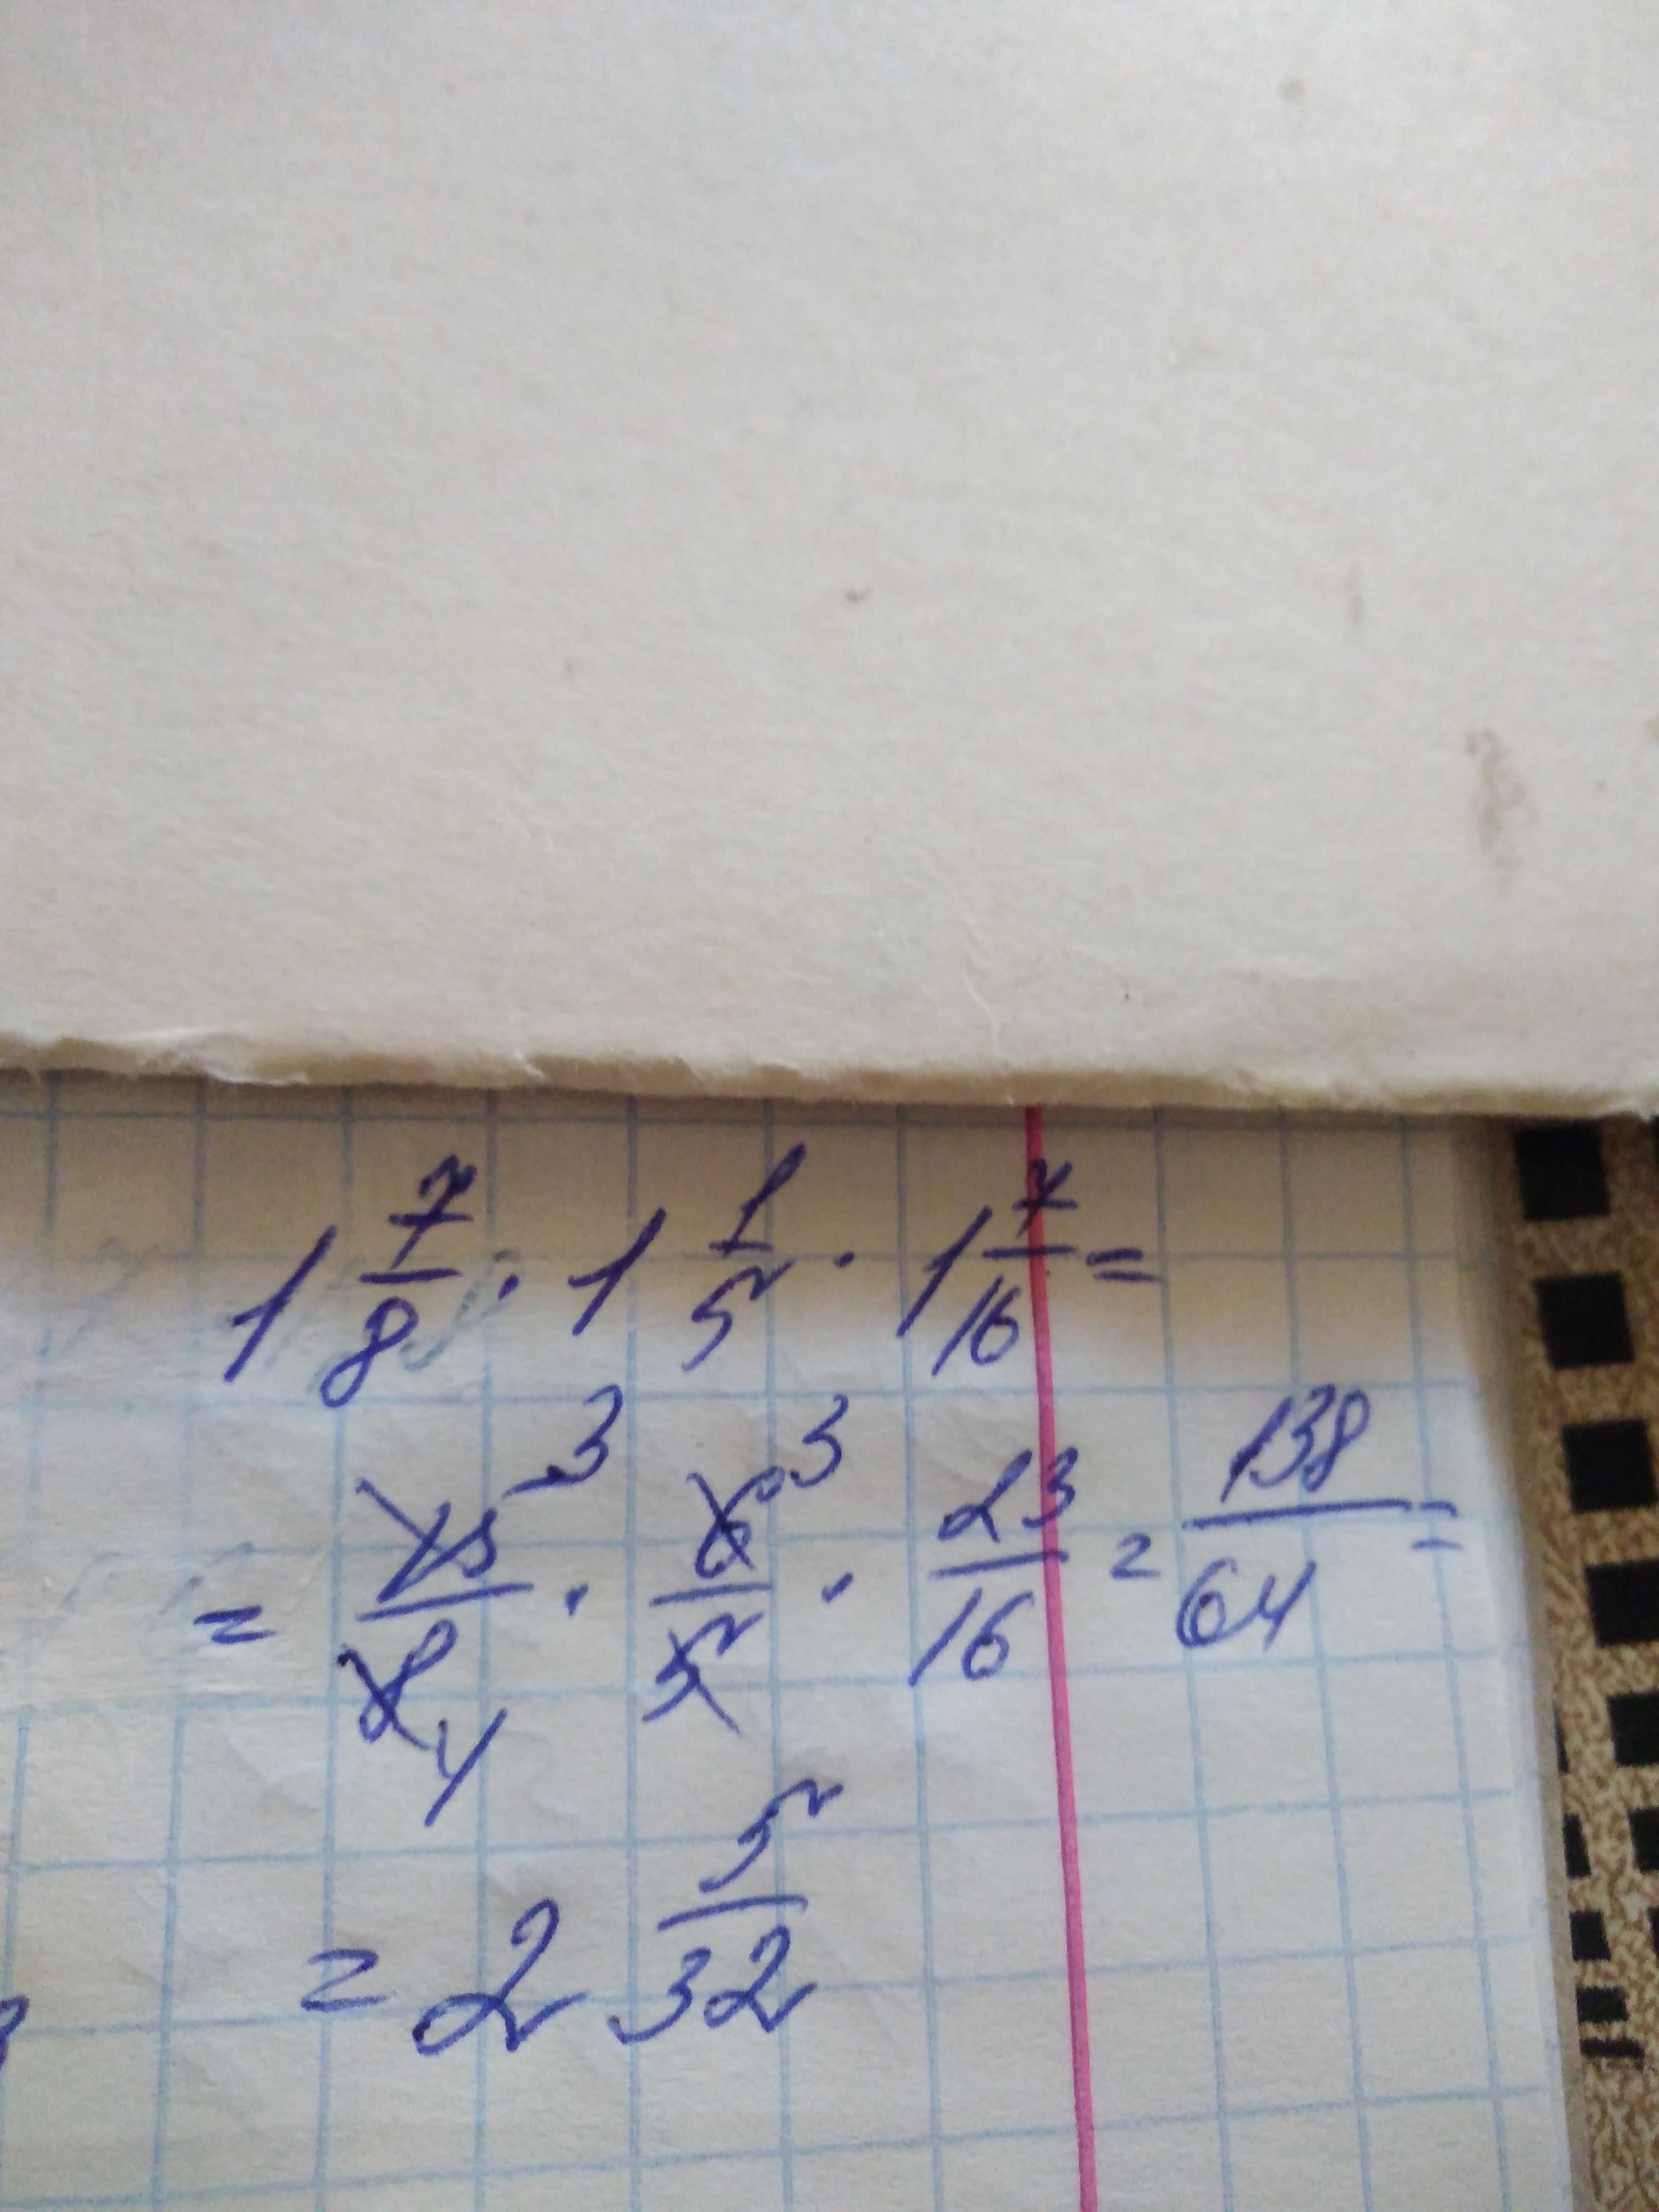 1 7/8 · 1 1/5 · 1 7/16 =
= 15/8 3 4 · 6/5 3 · 23/16 = 138/64 =
= 2 5/32